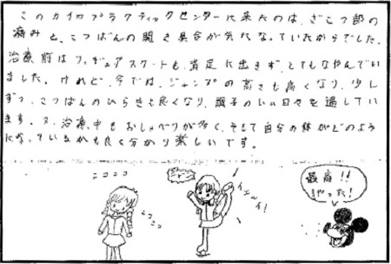 このカイロプラクティックセンターに来たのは、ざこつ部の
痛みと、こつばんの開き具合が気になっていたからでした。
治療前はフィギュアスケートも、満足に出きず、とてもなやんでい
ました。けれど、今では、ジャンプの高さも高くなり、少し
ずつ、こつばんのひらきも良くなり、調子のいい日々を過してい
ます。又、治療中もおしゃべりが多く、そして自分の体がどのよう
になっているかも良く分かり楽しいです。
ニコニコ
ニコニコ
ジャーン
イエーイ!
最高!!
やった!